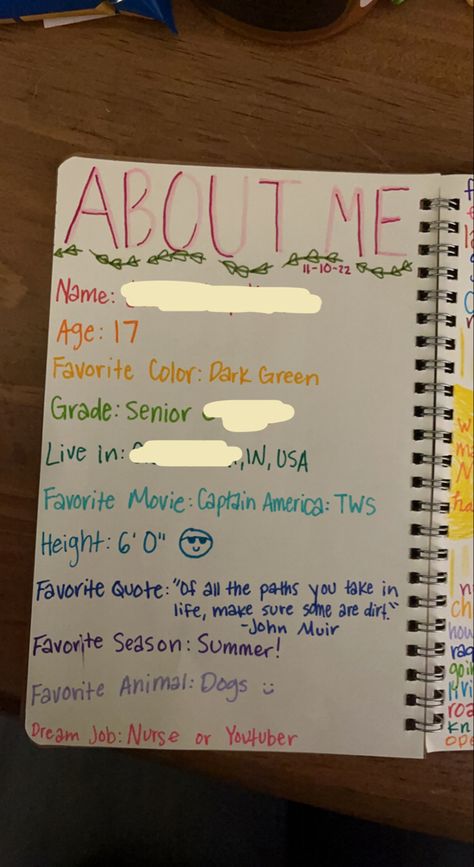 ABOUT ME
11-10-22
Name:
Age: 17
Favorite Color: Dark Green
Grade: Senior
Live in: , IN, USA
Favorite Movie: Captain America: TWS
Height: 6' 0"
Favorite Quote: "Of all the paths you take in
life, make sure some are dirt."
-John Muir
Favorite Season: Summer!
Favorite Animal: Dogs :)
Dream Job: Nurse or Youtuber